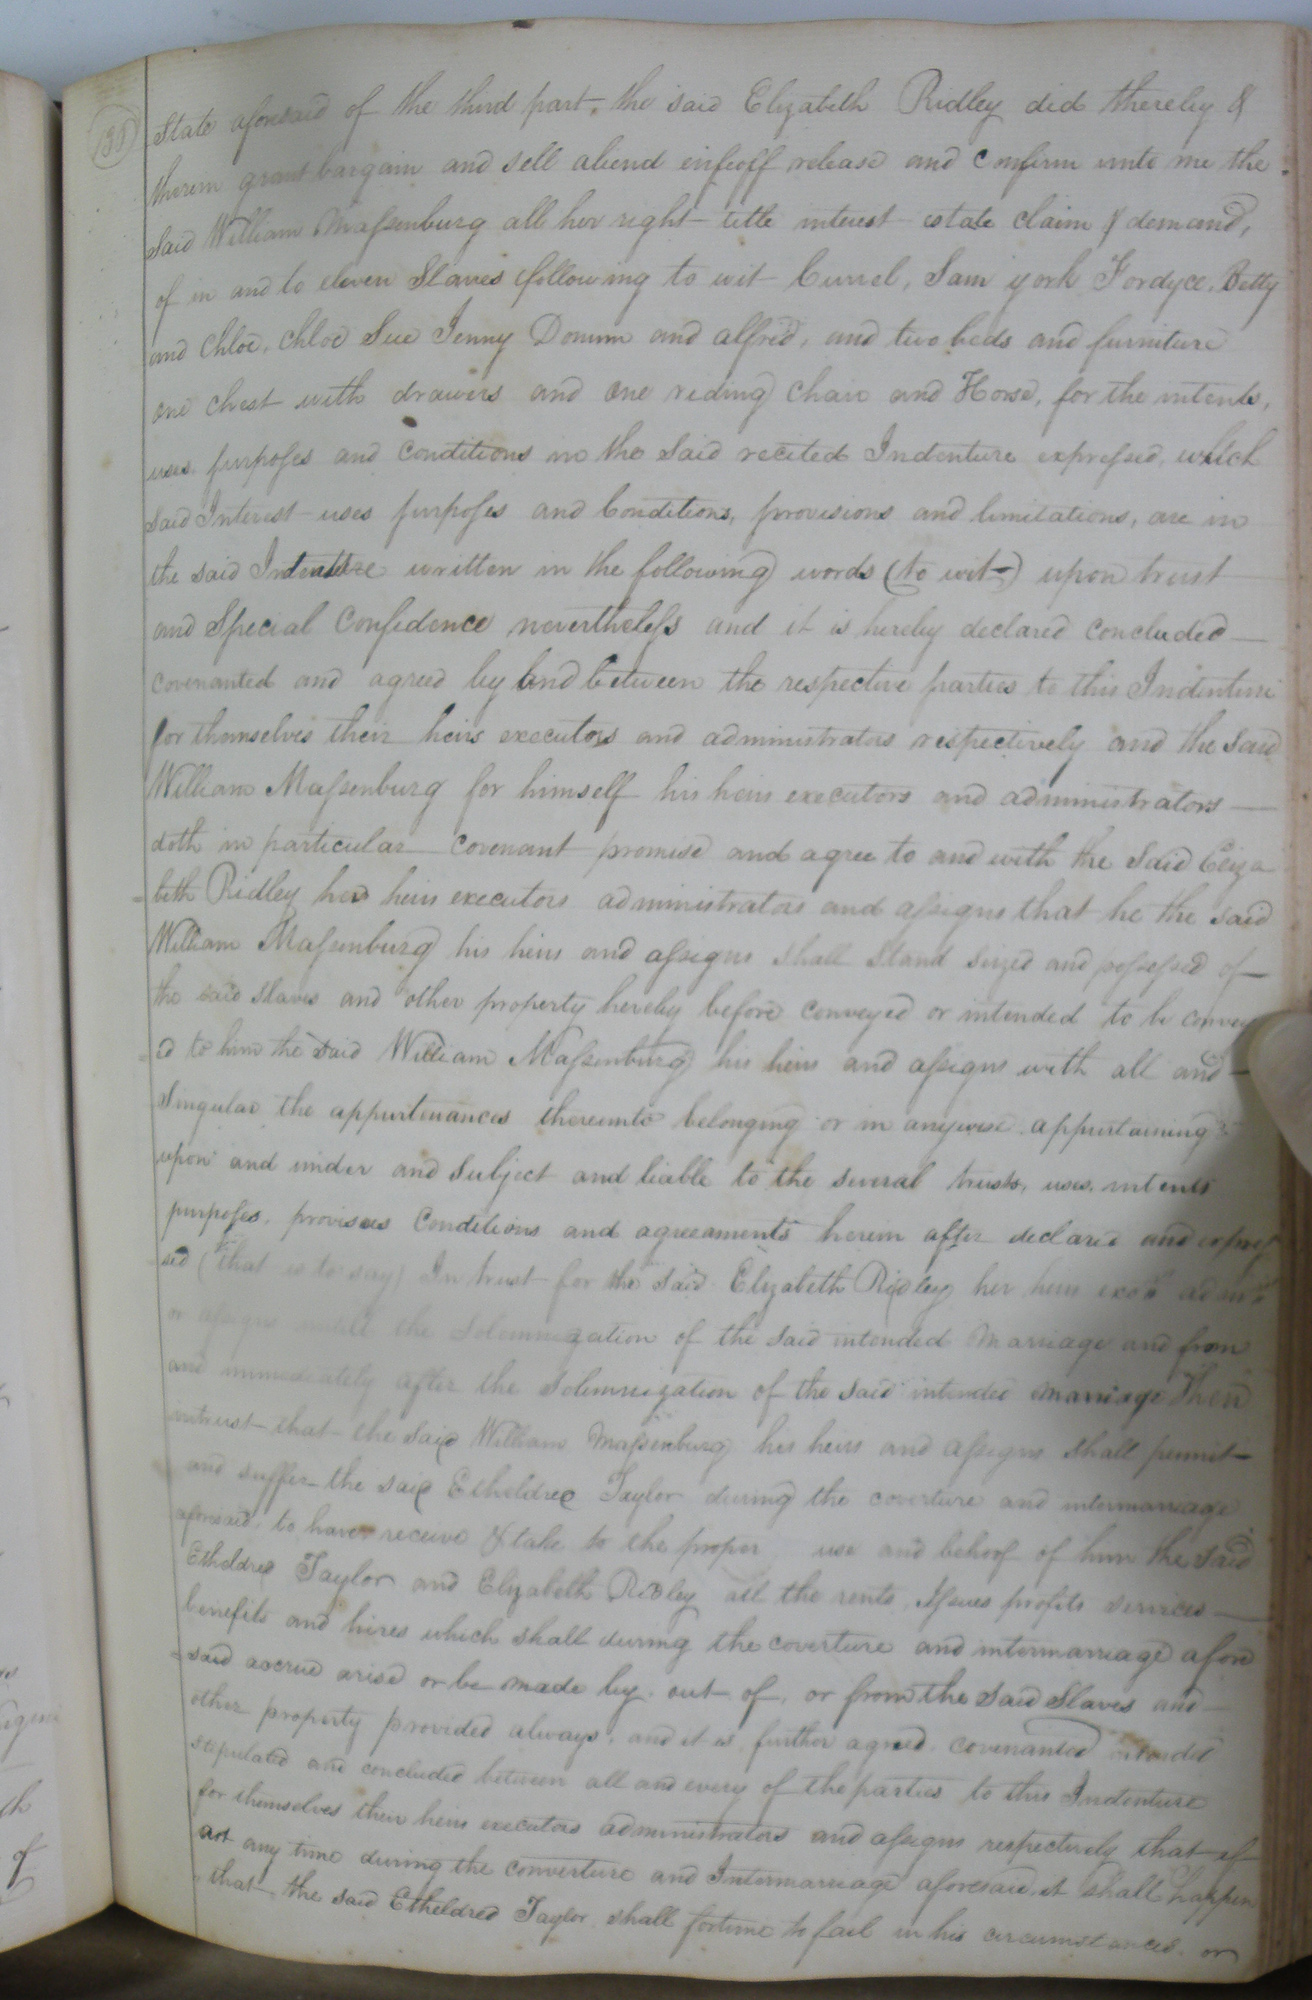 138
State aforesaid of the third part, the said Elizabeth Ridley did thereby &
therein grant bargain and sell aliend enfeoff release and confirm unto me the
said William Massenburg all her right title interest estate claim & demand,
of in and to eleven Slaves following to wit Currel, Sam york Fordyce, Betty
and Chloe, Chloe Sue Jenny Donum and alfred, and two beds and furniture
one chest with drawers and one riding chair and Horse, for the intents,
uses purposes and conditions in the said recited Indenture expressed, which
said Interest uses purposes and Conditions, provisions and limitations, are in
the said Indenture written in the following words (to wit) upon trust
and Special Confidence nevertheless and it is hereby declared concluded
covenanted and agreed by and between the respective parties to this Indenture
for themselves their heirs executors and administrators respectively and the said
William Massenburg for himself his heirs executors and administrators
doth in particular covenant promise and agree to and with the said Eliza
beth Ridley her heirs executors administrators and assigns that he the said
William Massenburg his heirs and assigns shall stand seized and possessed of
the said slaves and other property hereby before conveyed or intended to be convey
ed to him the said William Massenburg his heirs and assigns with all and
Singular the appurtenances thereunto belonging or in anywise appurtaining
upon and under and subject and liable to the several trusts, uses, intents
purposes, provisoes Conditions and agreeaments herein after declared and expres
sed (that is to say) In trust for the said Elizabeth Ridley her heirs exors admrs
or assigns untill the solemnization of the said intended Marriage and from
and immediately after the solemnization of the said intended marriage Then
intrust that the said William Massenburg his heirs and assigns shall permit
and suffer the said Etheldred Taylor during the coverture and intermarriage
aforesaid, to have receive & take to the proper use and behoof of him the said
Etheldred Taylor and Elizabeth Ridley all the rents, Issues profits services
benefits and hires which shall during the coverture and intermarriage afore
said accrue arise or be made by, out of, or from the said Slaves and
other property provided always, and it is further agreed covenanted
stipulated and concluded between all and every of the parties to this Indenture
for themselves their heirs executors administrators and assigns respectively that if
at any time during the converture and Intermarriage aforesaid it shall happen
that the said Etheldred Taylor shall fortune to fail in his circumstances or